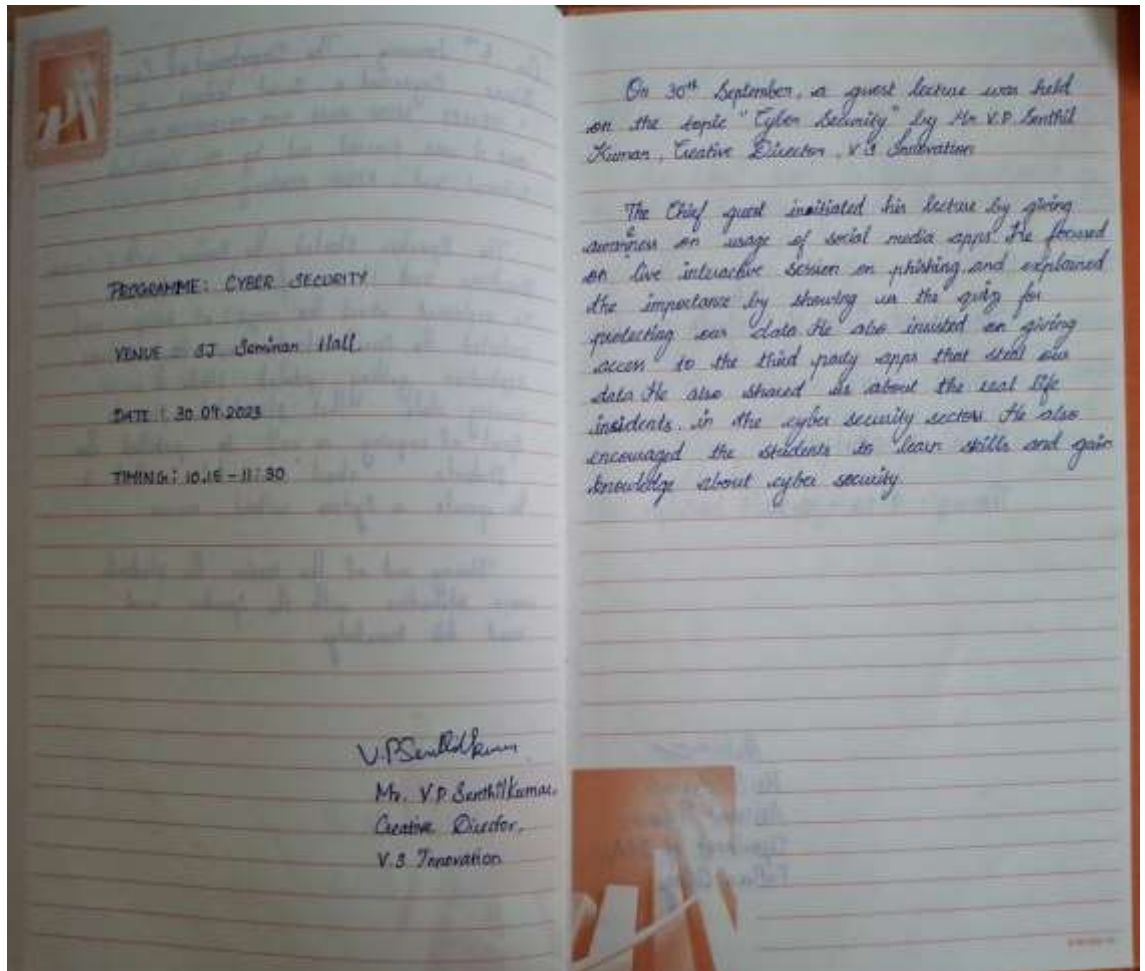 PROGRAMME: CYBER SECURITY
VENUE : SJ Seminar Hall
DATE : 30.09.2023
TIMING: 10.15 - 11:30
V.P.Senthilkumar
Mr. V.P. Senthilkumar,
Creative Director,
V.S Innovation
On 30th September, a guest lecture was held
on the topic "Cyber Security" by Mr V.P. Senthil
Kumar, Creative Director, V.S Innovation
The Chief guest initiated his lecture by giving
awareness on usage of social media apps. He focused
on live interactive session on phishing and explained
the importance by showing us the quiz for
protecting our data. He also insisted on giving
access to the third party apps that steal our
data. He also shared us about the real life
insidents in the cyber security sectors. He also
encouraged the students to learn skills and gain
knowledge about cyber security.